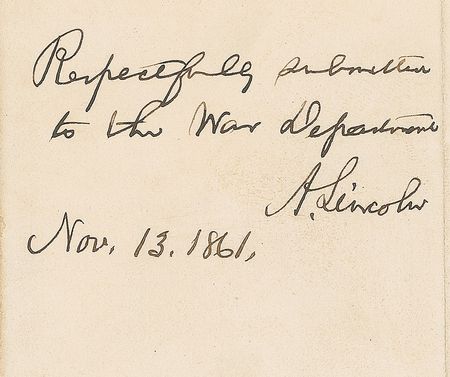 Respectfully submitted
to the War Department
A. Lincoln
Nov. 13. 1861.